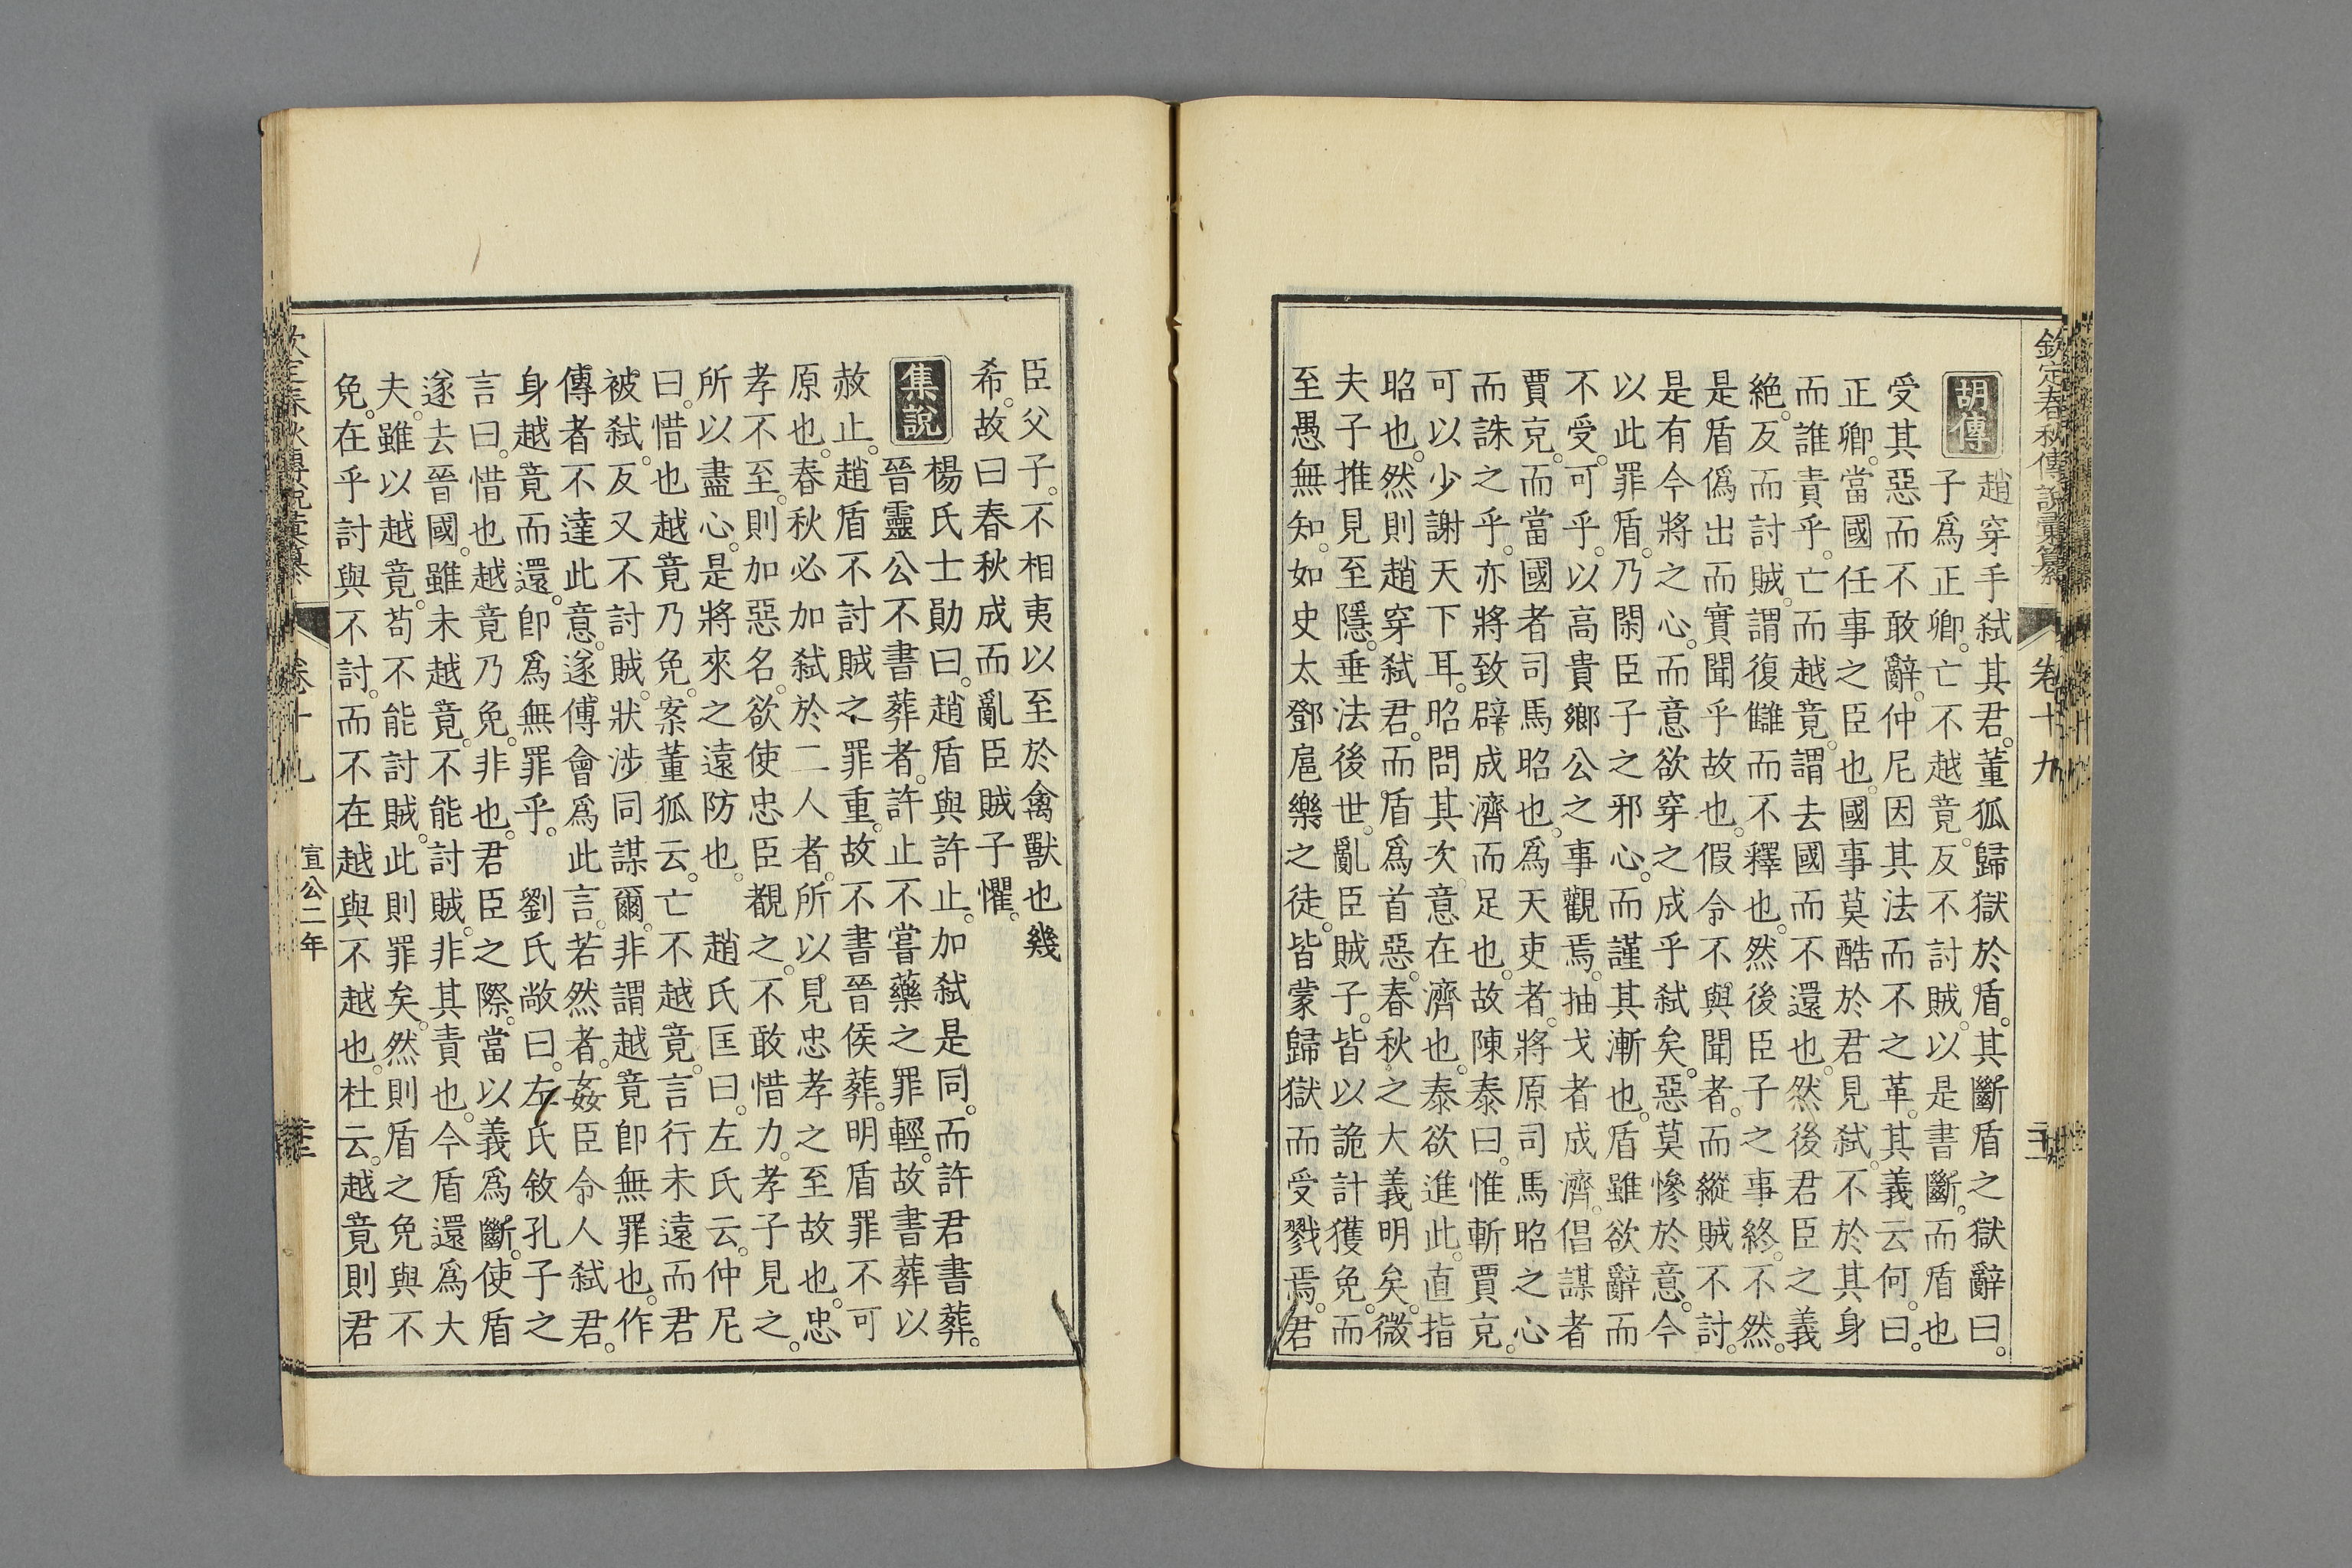 欽定春秋傳說彙纂　卷十九
胡傳
趙穿手弑其君。董狐歸獄於盾。其斷盾之獄辭曰。
子爲正卿。亡不越竟。反不討賊。以是書斷。而盾也
受其惡而不敢辭。仲尼因其法而不之革。其義云何。曰。
正卿。當國任事之臣也。國事莫酷於君見弑。不於其身
而誰責乎。亡而越竟。謂去國而不還也。然後君臣之義
絕。反而討賊。謂復讎而不釋也。然後臣子之事終。不然。
是盾僞出而實聞乎故也。假令不與聞者。而縱賊不討。
是有今將之心。而意欲穿之成乎弑矣。惡莫慘於意。今
以此罪盾。乃閑臣子之邪心。而謹其漸也。盾雖欲辭而
不受。可乎。以高貴鄉公之事觀焉。抽戈者成濟。倡謀者
賈充。而當國者司馬昭也。爲天吏者。將原司馬昭之心
而誅之乎。亦將致辟成濟而足也。故陳泰曰。惟斬賈充。
可以少謝天下耳。昭問其次。意在濟也。泰欲進此。直指
昭也。然則趙穿弑君。而盾爲首惡。春秋之大義明矣。微
夫子推見至隱。垂法後世。亂臣賊子。皆以詭計獲免。而
至愚無知。如史太鄧扈樂之徒。皆蒙歸獄而受戮焉。君
臣父子。不相夷以至於禽獸也幾
希。故曰春秋成而亂臣賊子懼。
集說
楊氏士勛曰。趙盾與許止。加弑是同。而許君書葬。
晉靈公不書葬者。許止不嘗藥之罪輕。故書葬以
赦止。趙盾不討賊之罪重。故不書晉侯葬。明盾罪不可
原也。春秋必加弑於二人者。所以見忠孝之至故也。忠
孝不至。則加惡名。欲使忠臣覩之。不敢惜力。孝子見之。
所以盡心。是將來之遠防也。　趙氏匡曰。左氏云。仲尼
曰。惜也越竟乃免。案董狐云。亡不越竟。言行未遠而君
被弑。反又不討賊。狀涉同謀爾。非謂越竟卽無罪也。作
傳者不達此意。遂傳會爲此言。若然者。姦臣令人弑君。
身越竟而還。卽爲無罪乎。　劉氏敞曰。左氏敘孔子之
言曰。惜也越竟乃免。非也。君臣之際。當以義爲斷。使盾
遂去晉國。雖未越竟。不能討賊。非其責也。今盾還爲大
夫。雖以越竟。苟不能討賊。此則罪矣。然則盾之免與不
免。在乎討與不討。而不在越與不越也。杜云。越竟則君
欽定春秋傳說彙纂　卷十九　宣公二年